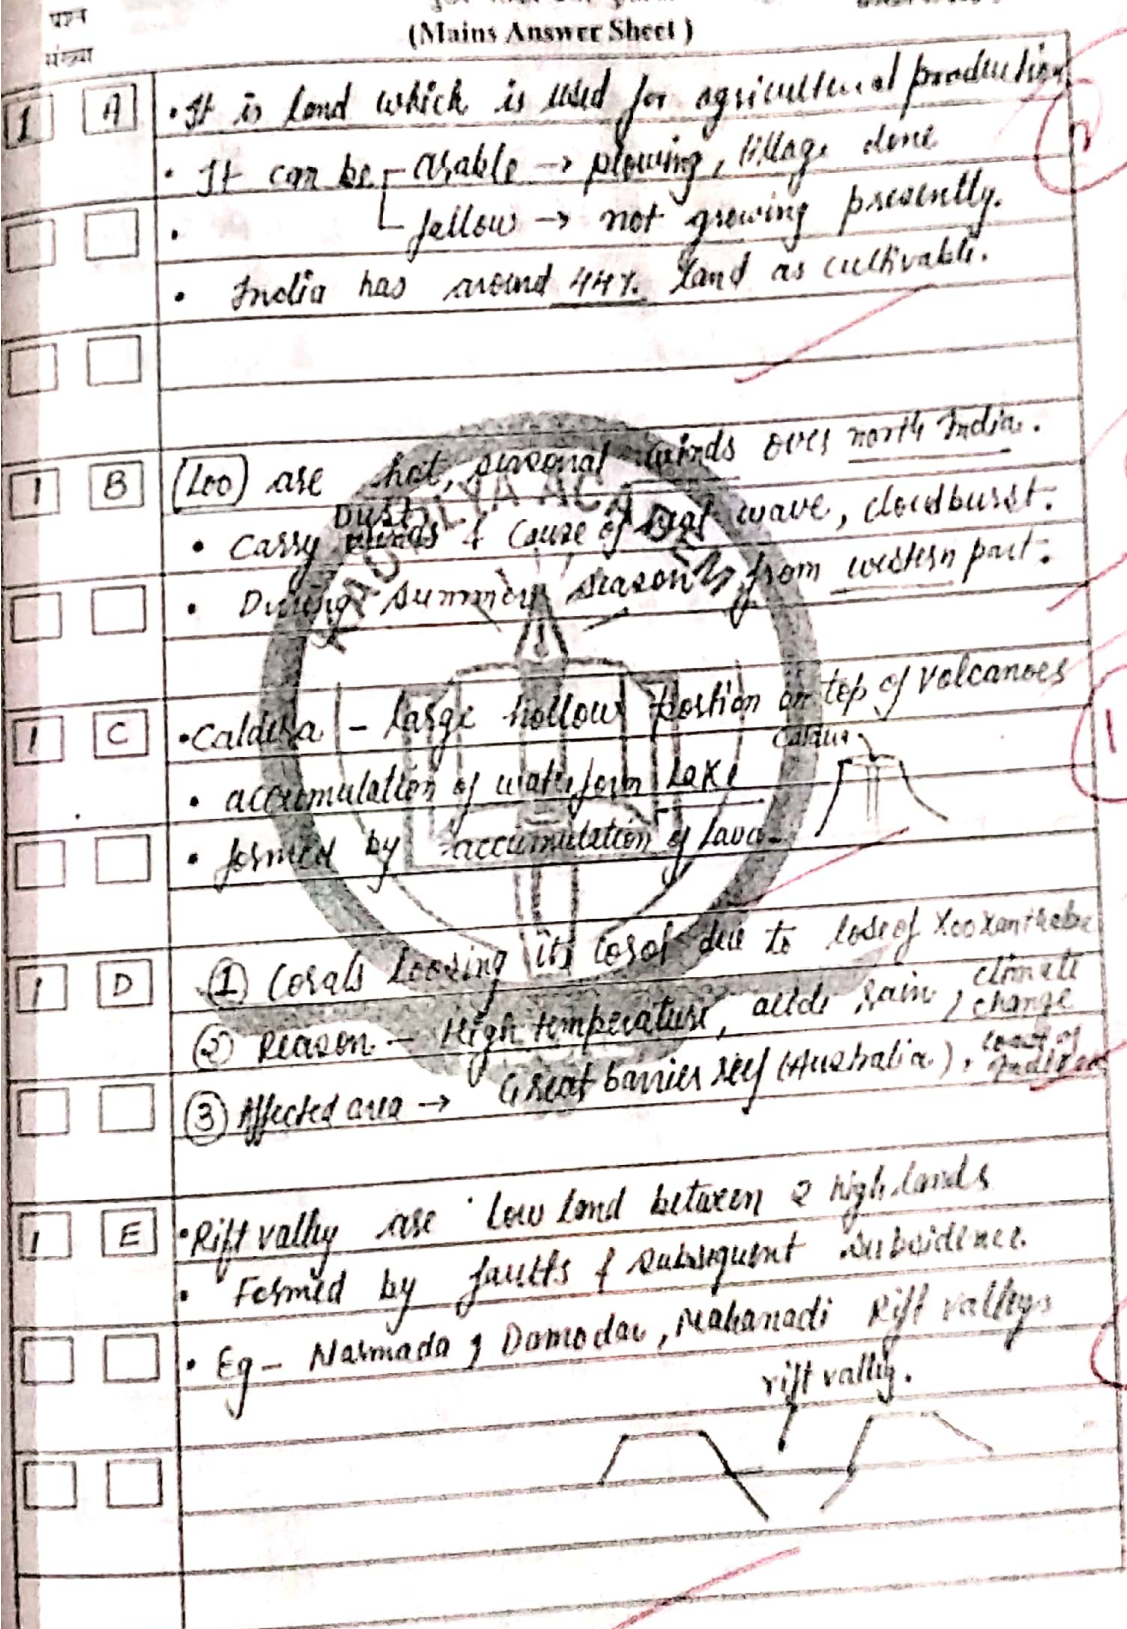 प्रश्न
संख्या
(Mains Answer Sheet)
1 A • It is land which is used for agricultural production
• It can be arable → plowing, tillage done
• fallow → not growing presently.
• India has around 44% land as cultivable.
1 B (Loo) are hot, seasonal winds over north India.
Dust
• carry winds & cause of heat wave, cloudburst.
• During summer season from western part.
KAUTILYA ACADEMY
1 C • Caldera - large hollow portion on top of volcanoes
• accumulation of water form Lake
• formed by accumulation of lava.
1 D ① Corals loosing its due to lose of
② Reason - High temperature, rain, climate change
③ Affected area → Great barrier reef (Australia),
1 E • Rift valley are low land between 2 high lands
• Formed by faults & subsequent subsidence.
• Eg - Narmada, Damodar, Mahanadi Rift valleys
rift valley.